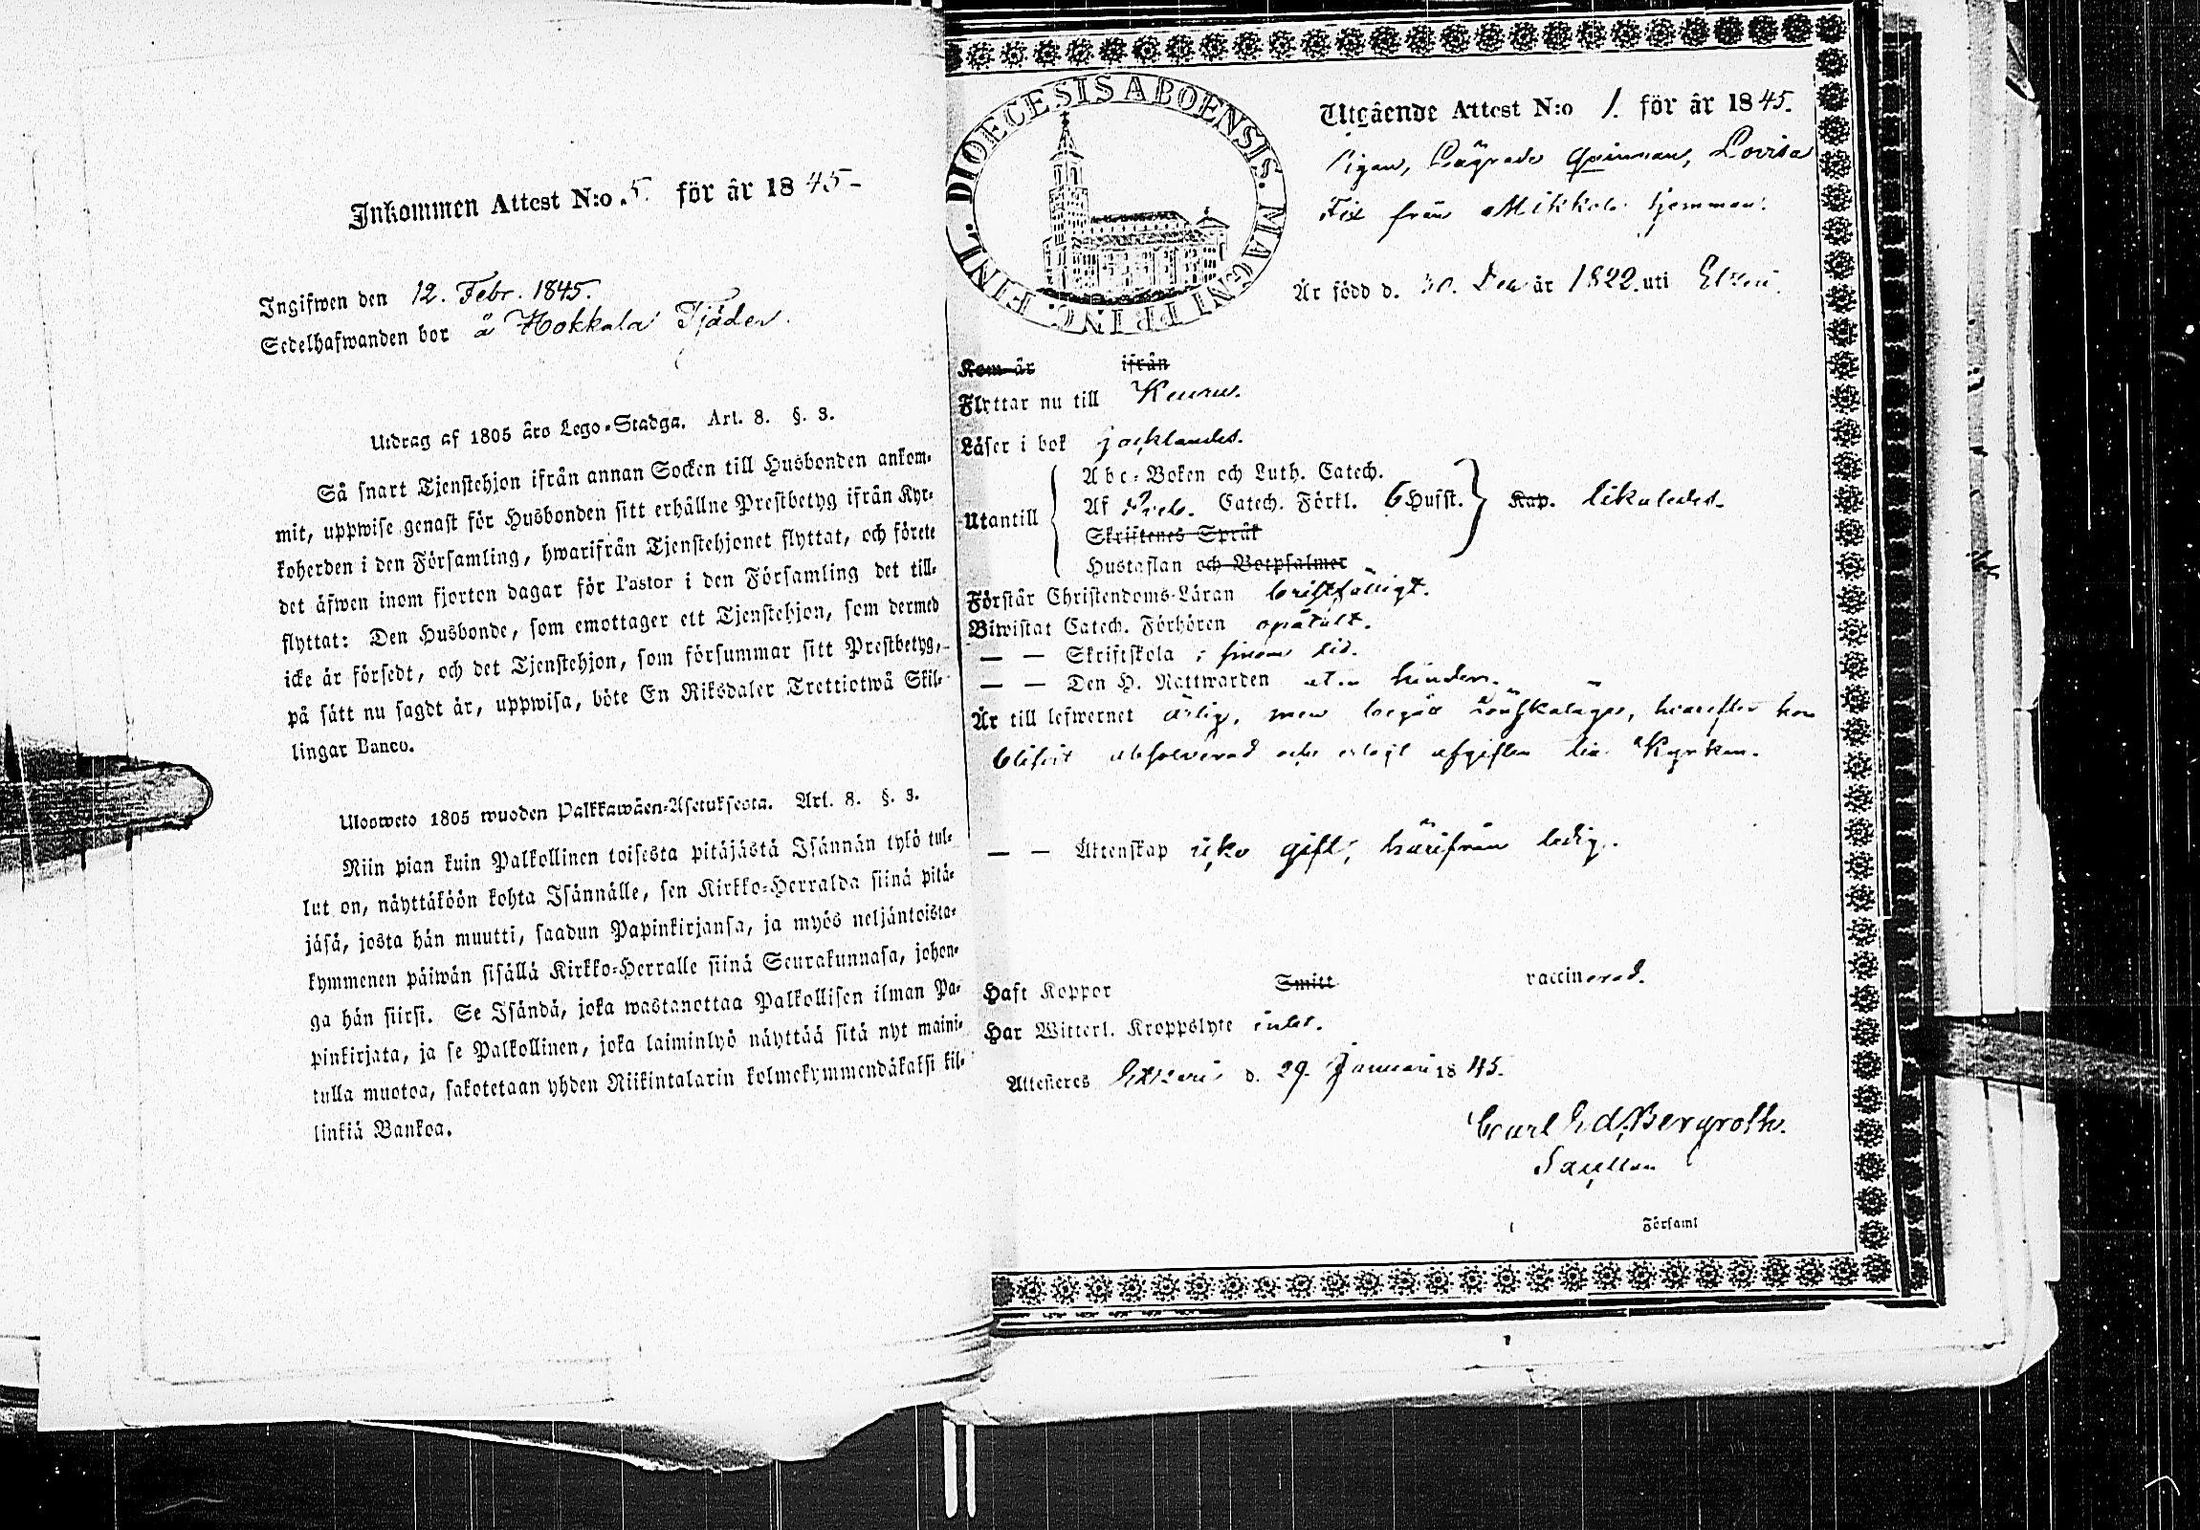 Inkommen Attest N:o 5. för år 1845.
Ingifwen den 12. Febr. 1845.
Sedelhafwanden bor å Hokkala Tjäder.
Utdrag af 1805 års Lego-Stadga. Art. 8. §. 3.
Så snart Tjenstehjon ifrån annan Socken till Husbonden ankom-
mit, uppwise genast för Husbonden sitt erhållne Prestbetyg ifrån Kyr-
koherden i den Församling, hwarifrån Tjenstehjonet flyttat, och förete
det äfwen inom fjorton dagar för Pastor i den Församling det till-
flyttat: Den Husbonde, som emottager ett Tjenstehjon, som dermed
icke är försedt, och det Tjenstehjon, som försummar sitt Prestbetyg,
på sätt nu sagdt är, uppwisa, böte En Riksdaler Trettiotwå Skil-
lingar Banco.
Ulosweto 1805 wuoden Palkkawäen-Asetuksesta. Art. 8. §. 3.
Niin pian kuin Palkollinen toisesta pitäjästä Isännän tykö tul-
lut on, näyttäköön kohta Isännälle, sen Kirkko-Herralda siinä pitä-
jäsä, josta hän muutti, saadun Papinkirjansa, ja myös neljäntoista-
kymmenen päiwän sisällä Kirkko-Herralle siinä Seurakunnasa, johon-
ga hän siirsi. Se Isändä, joka wastanottaa Palkollisen ilman Pa-
pinkirjata, ja se Palkollinen, joka laiminlyö näyttää sitä nyt maini-
tulla muotoa, sakotetaan yhden Riikintalarin kolmekymmendäkaksi kil-
linkiä Bankoa.
DIOECESIS ABOENSIS. MAGNI PRINC. FINL.
Utgående Attest N:o 1. för år 1845.
Pigan, Lägrade qvinnan, Lovisa
från Mikkola hemman.
Är född d. 30. Dec. år 1822. uti Etseri.
Kom år ifrån
Flyttar nu till Keuru.
Läser i bok
Abc-Boken och Luth. Catech.
Utantill Af Catech. Förkl. 6 Husst. Kap. likaledes.
Skriftenes Språk
Hustaflan och Botpsalmer
Förstår Christendoms-Läran bristfälligt.
Biwistat Catech. Förhören opåtalt.
— — Skriftskola i sinom tid.
— — Den H. Nattwarden utan hinder.
Är till lefwernet ärlig, men begått lönskaläger, hvarefter hon
blifvit absolverad och erlagt afgiften till Kyrkan.
— — Äktenskap icke gift, härifrån ledig.
Haft Koppor Smitt vaccinerad.
Har Witterl. Kroppslyte intet.
Attesteres Etseri d. 29. Januari 1845.
Carl Ed. Bergroth.
Församl